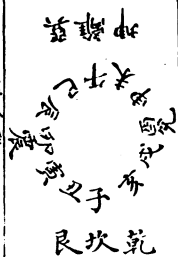 巽離坤
子丑寅卯辰巳午未申酉戌亥
震
兌
艮坎乾